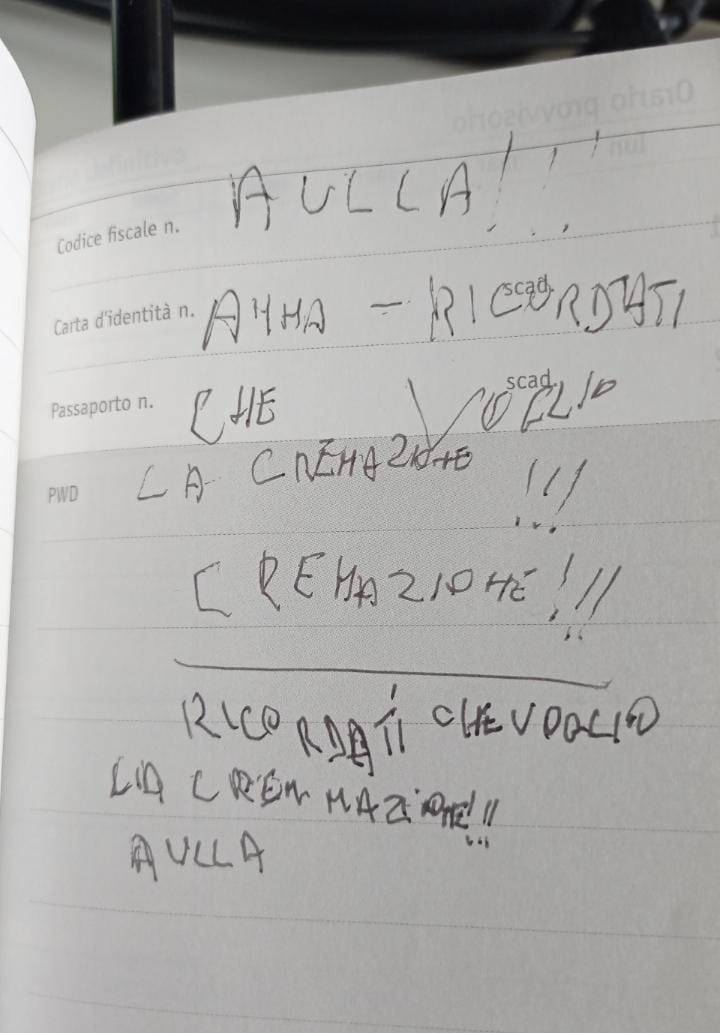 Orario provvisorio
lun
Codice fiscale n. AULLA!!!
Carta d'identità n. ANNA - RICORDATI scad.
Passaporto n. CHE VOGLIO scad.
PWD LA CREMAZIONE !!!
CREMAZIONE!!!
RICORDATI CHE VOGLIO
LA CREMMAZIONE!!!
AULLA